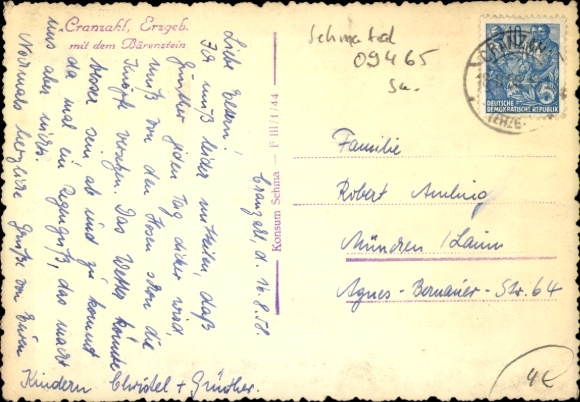 Cranzahl, Erzgeb.
mit dem Bärenstein
Cranzahl, d. 16.8.58.
Liebe Eltern!
Ich muß leider mitteilen, daß
Günther jeden Tag dicker wird,
muß von den Hosen schon die
Knöpfe versetzen. Das Wetter könnte
besser sein, ab und zu kommt
da mal ein Regenguß, das macht
uns aber nichts.
Nochmals herzliche Grüße von Euren
Kindern Christel + Günther.
Konsum Sehma — F III/1/44
Sehmatal
09465
10
5
DEUTSCHE
DEMOKRATISCHE REPUBLIK
Familie
Robert Amling
München / Laim
Agnes-Bernauer-Str. 64
4€